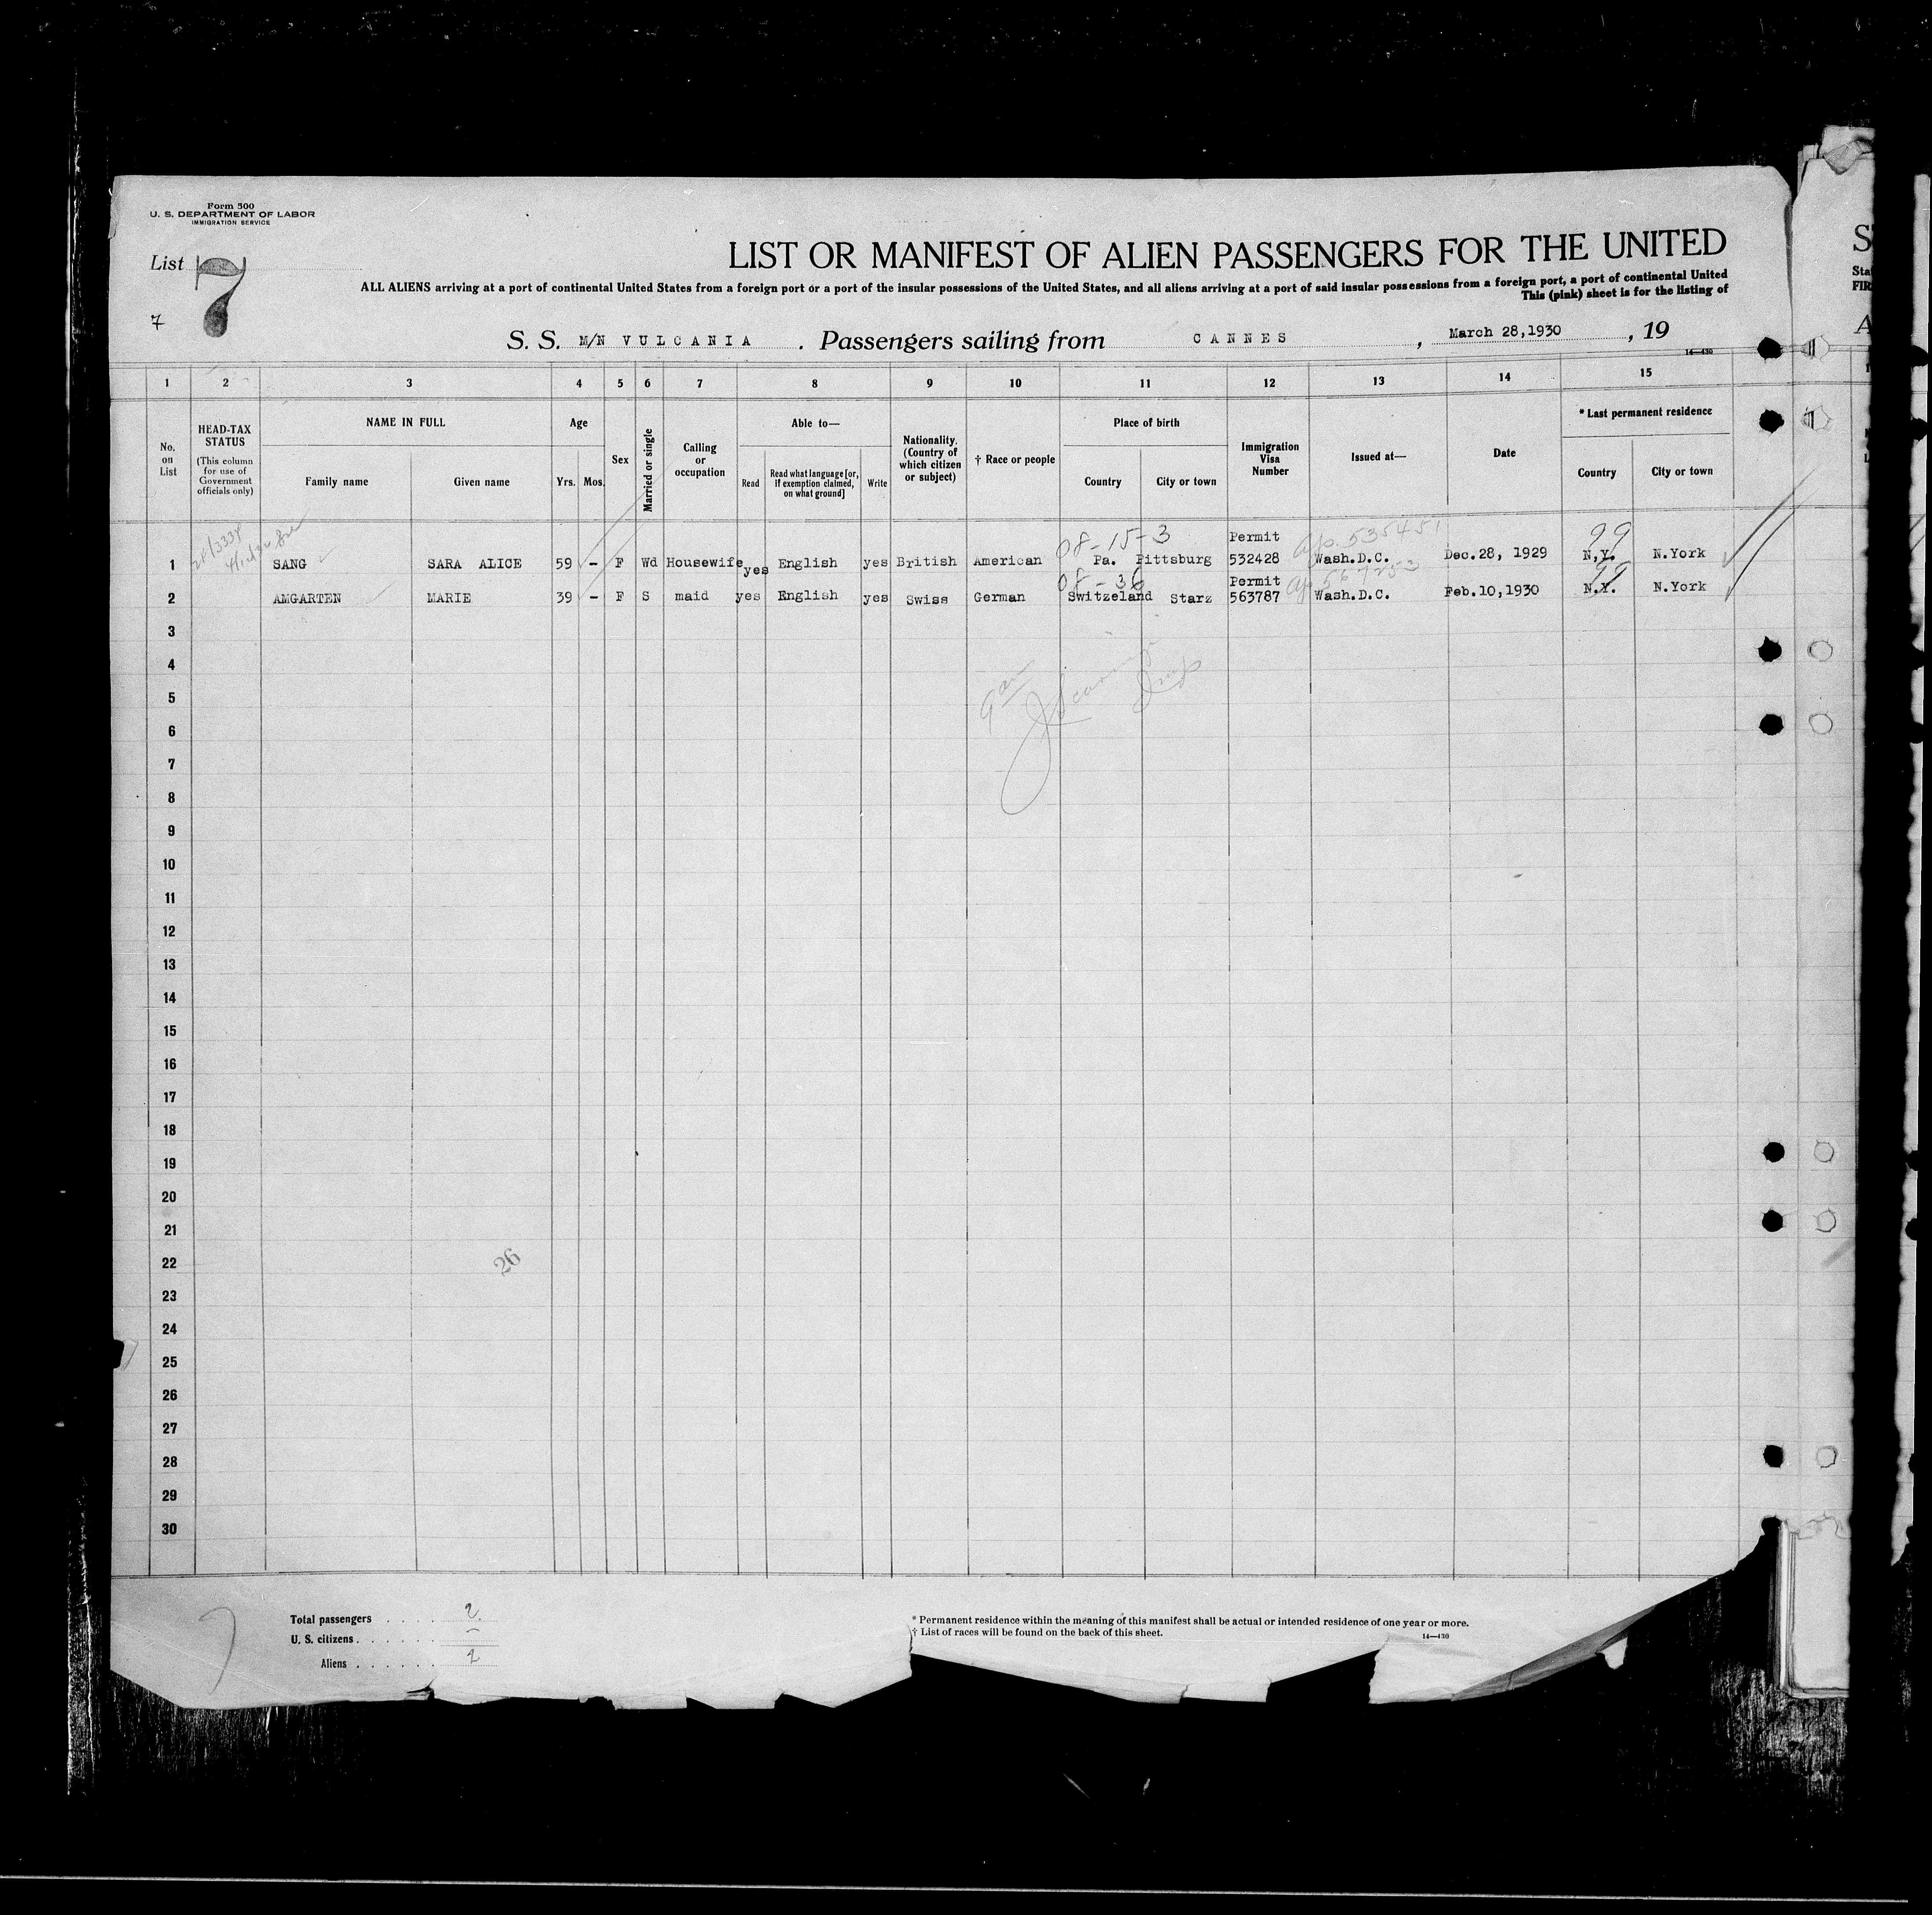 Form 500
U. S. DEPARTMENT OF LABOR
IMMIGRATION SERVICE
List 7
7
LIST OR MANIFEST OF ALIEN PASSENGERS FOR THE UNITED
ALL ALIENS arriving at a port of continental United States from a foreign port or a port of the insular possessions of the United States, and all aliens arriving at a port of said insular possessions from a foreign port, a port of continental United
This (pink) sheet is for the listing of
S. S. M/N VULCANIA . Passengers sailing from CANNES , March 28,1930 , 19
14—430
1 2 3 4 5 6 7 8 9 10 11 12 13 14 15
No. on List
HEAD-TAX STATUS (This column for use of Government officials only)
NAME IN FULL
Family name
Given name
Age
Yrs. Mos.
Sex
Married or single
Calling or occupation
Able to—
Read
Read what language [or, if exemption claimed, on what ground]
Write
Nationality. (Country of which citizen or subject)
† Race or people
Place of birth
Country
City or town
Immigration Visa Number
Issued at—
Date
* Last permanent residence
Country
City or town
08-15-3 Permit 535451 99
1 SANG SARA ALICE 59 - F Wd Housewife yes English yes British American Pa. Pittsburg 532428 Wash.D.C. Dec.28, 1929 N,Y. N.York
08-36 Permit 99
2 AMGARTEN MARIE 39 - F S maid yes English yes Swiss German Switzeland Starz 563787 Wash.D.C. Feb.10,1930 N.Y. N.York
3
4
5
6
7
8
9
10
11
12
13
14
15
16
17
18
19
20
21
22
26
23
24
25
26
27
28
29
30
Total passengers . . . . . 2
U. S. citizens . . . . . . -
Aliens . . . . . . 2
* Permanent residence within the meaning of this manifest shall be actual or intended residence of one year or more.
† List of races will be found on the back of this sheet.
14—430